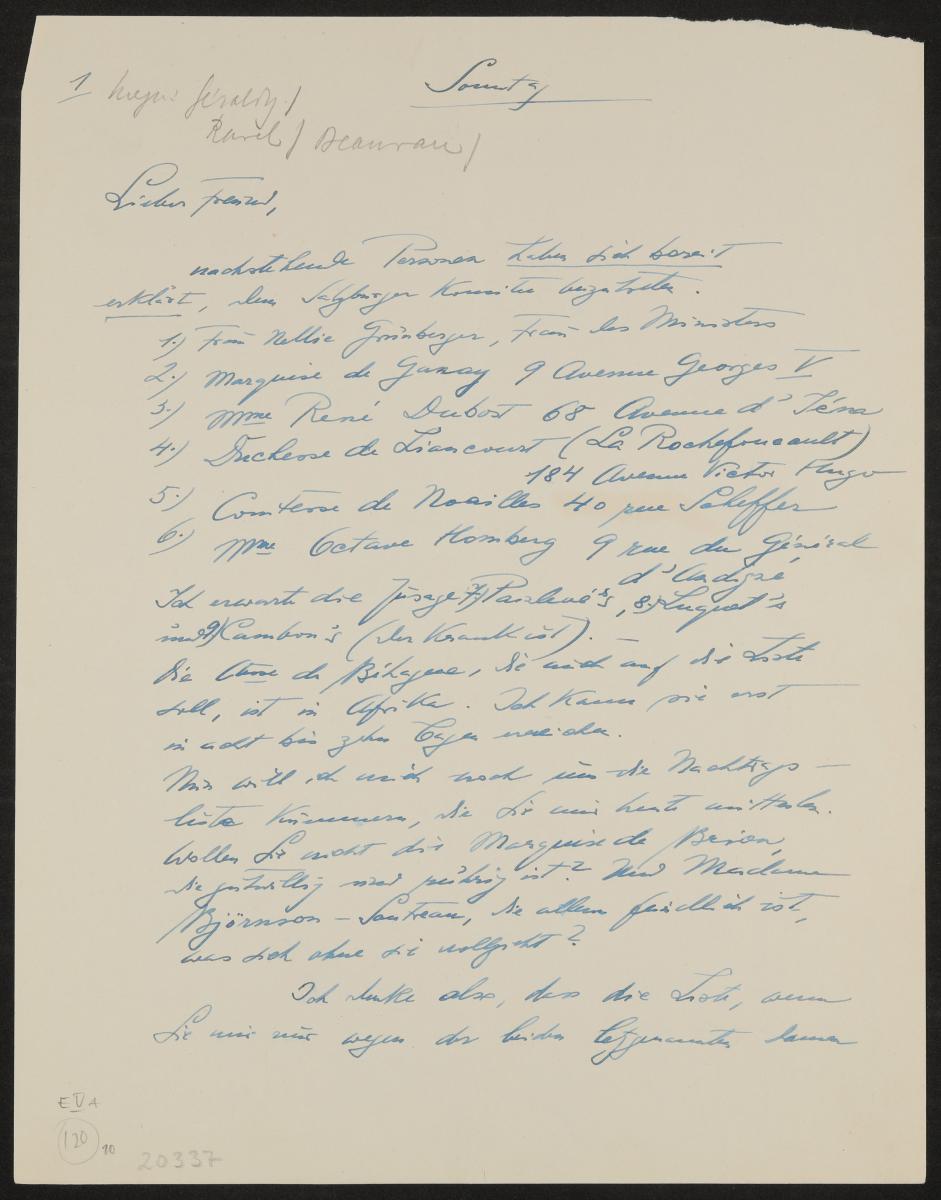 1
Sonntag
Ravel /
Lieber Freund,
nachstehende Personen haben sich bereit
erklärt, dem Salzburger Komitee beizutreten.
1.) Frau Nellie Grünberger, Frau des Ministers
2.) Marquise de Ganay 9 Avenue Georges V
3.) Mme René Dubost 68 Avenue d'Iéna
4.) Duchesse de Liancourt (La Rochefoucault)
184 Avenue Victor Hugo
5.) Comtesse de Noailles 40 rue Scheffer
6.) Mme Octave Homberg 9 rue du Général
d'Andigné
Ich erwarte die Zusage 7) Painlevé's, 8.) Luquet's
und 9) Cambon's (der krank ist). —
Die Ctesse de Béhague, die auch auf die Liste
soll, ist in Afrika. Ich kann sie erst
in acht bis zehn Tagen erreichen.
Nun will ich mich noch um die Nachtrags-
liste kümmern, die Sie mir heute mitteilen.
Wollen Sie nicht die Marquise de Brion,
die gutwillig und rührig ist? Und Madame
Björnson-Sautreau, die allem feindlich ist,
was sich ohne sie vollzieht?
Ich denke also, dass die Liste, wenn
Sie mir nur wegen der beiden letzgenannten Damen
E V A
120
10
20337